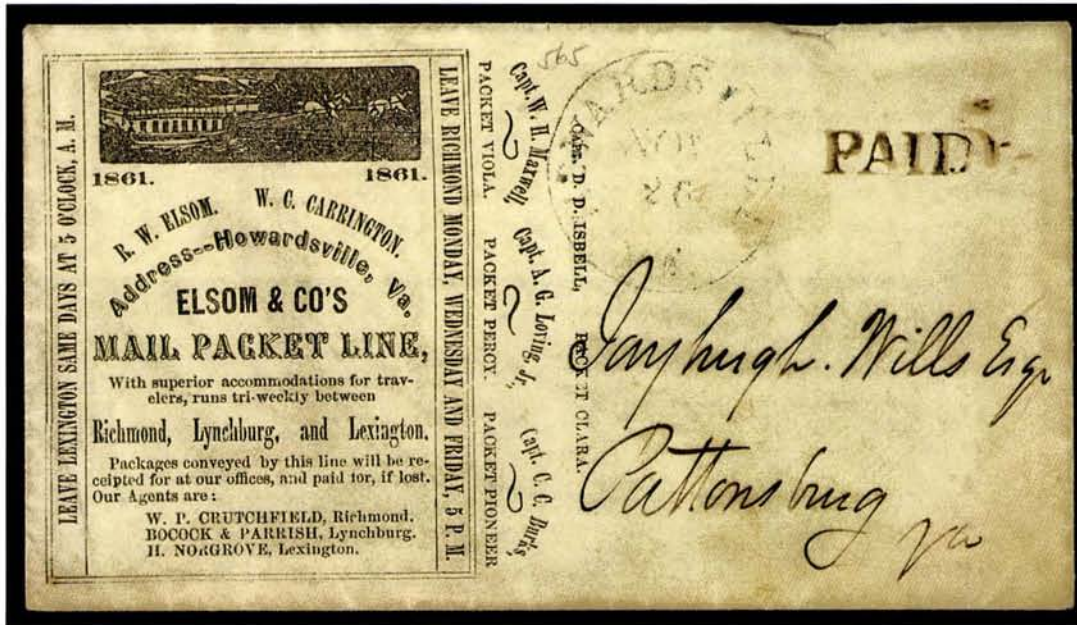 LEAVE LEXINGTON SAME DAYS AT 5 O'CLOCK, A. M.
1861. 1861.
R. W. ELSOM. W. C. CARRINGTON.
Address--Howardsville, Va.
ELSOM & CO'S
MAIL PACKET LINE,
With superior accommodations for trav-
elers, runs tri-weekly between
Richmond, Lynchburg, and Lexington.
Packages conveyed by this line will be re-
ceipted for at our offices, and paid for, if lost.
Our Agents are:
W. P. CRUTCHFIELD, Richmond.
BOCOCK & PARRISH, Lynchburg.
H. NORGROVE, Lexington.
LEAVE RICHMOND MONDAY, WEDNESDAY AND FRIDAY, 5 P. M.
PACKET VIOLA. PACKET PERCY. PACKET PIONEER
Capt. W. H. Maxwell, Capt. A. G. Loving, Jr., Capt. C. C. Burks
CAPT. D. D. ISBELL, PACKET CLARA.
565
NOV
PAID
Wills Esqr
Pattonsburg
Va